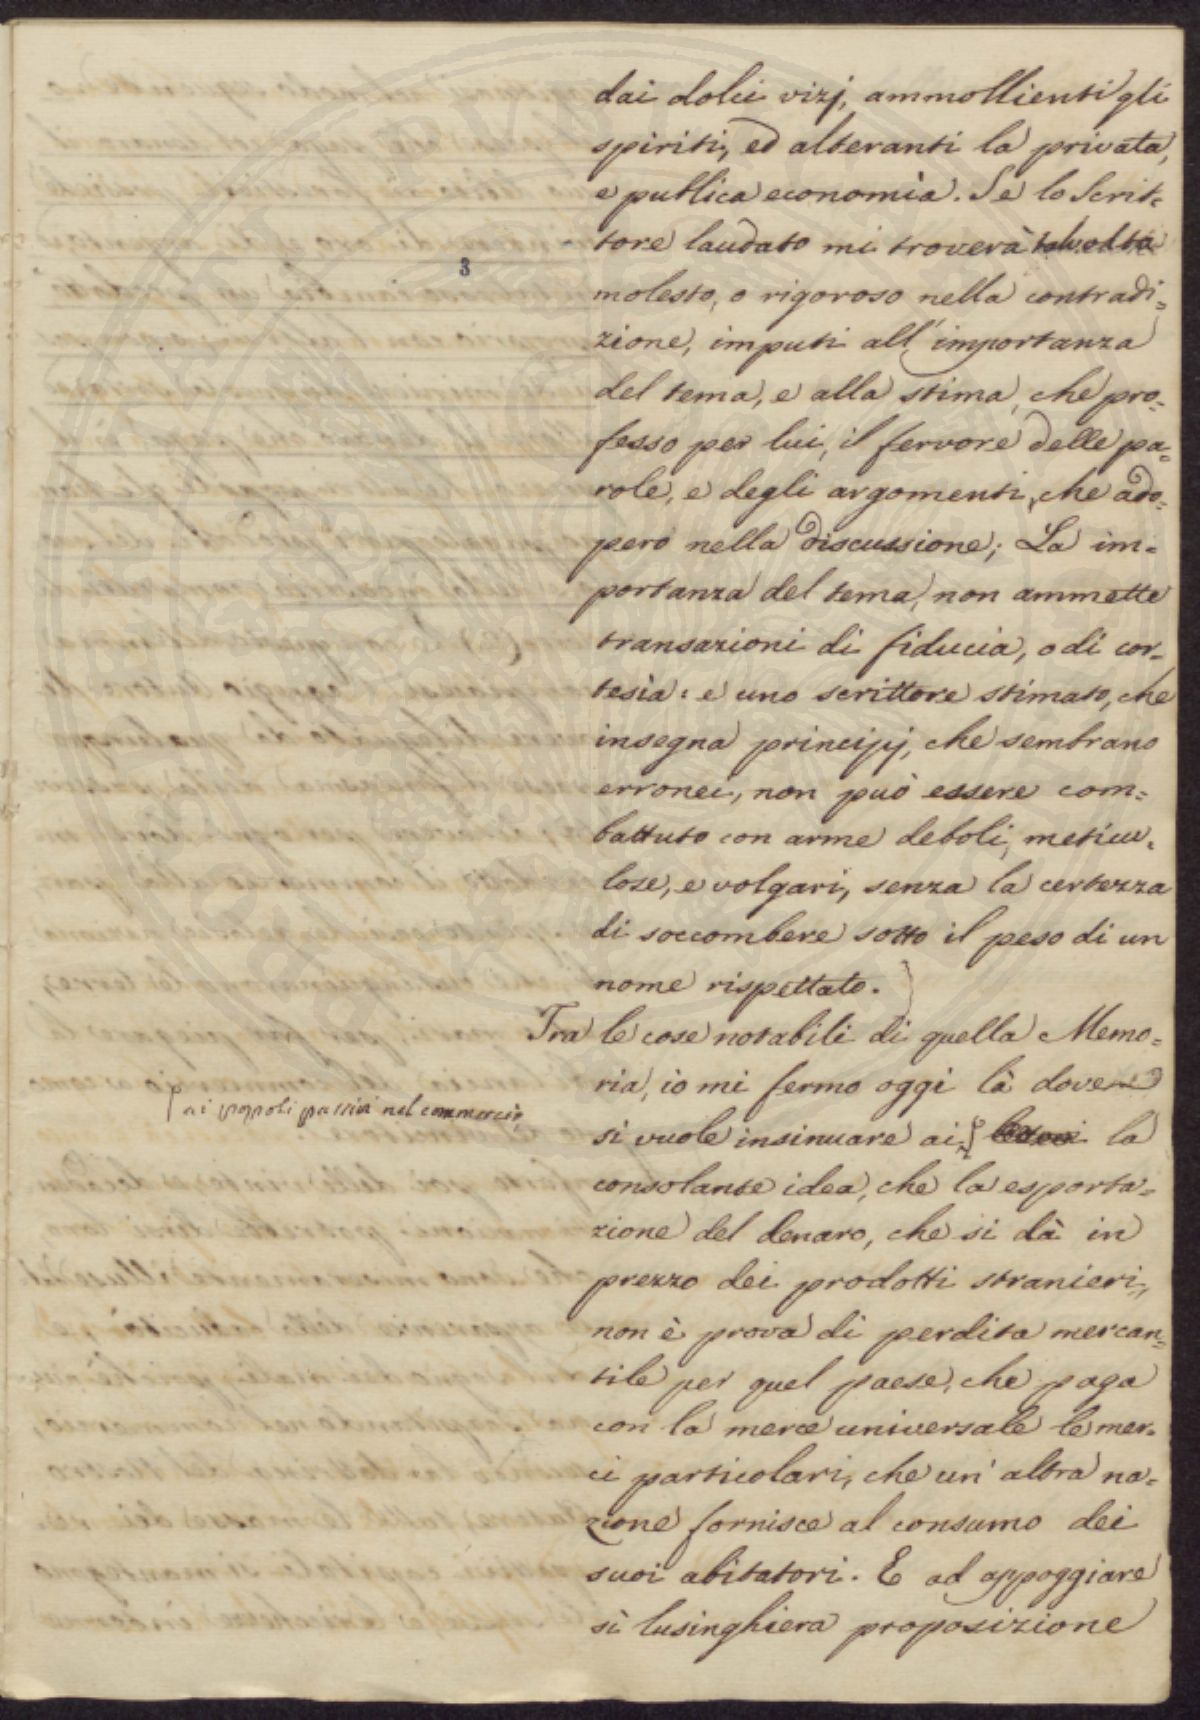 dai dolci vizj, ammollienti gli
spiriti, ed alteranti la privata,
e publica economia. Se lo Scrit=
tore laudato mi troverà talvolta
3
molesto, o rigoroso nella contradi=
zione, imputi all'importanza
del tema, e alla stima, che pro=
fesso per lui, il fervore delle pa=
role, e degli argomenti, che ado=
pero nella discussione; La im=
portanza del tema, non ammette
transazioni di fiducia, o di cor=
tesìa: e uno scrittore stimato, che
insegna principj, che sembrano
erronei, non può essere com=
battuto con arme deboli, meticu=
lose, e volgari, senza la certezza
di soccombere sotto il peso di un
nome rispettato.
Tra le cose notabili di quella Memo=
ria, io mi fermo oggi là dove
ai popoli passivi nel commercio,
si vuole insinuare ai la
consolante idea, che la esporta=
zione del denaro, che si dà in
prezzo dei prodotti stranieri,
non è prova di perdita mercan=
tile per quel paese, che paga
con la merce universale le mer=
ci particolari, che un'altra na=
zione fornisce al consumo dei
suoi abitatori. E ad appoggiare
sì lusinghiera proposizione